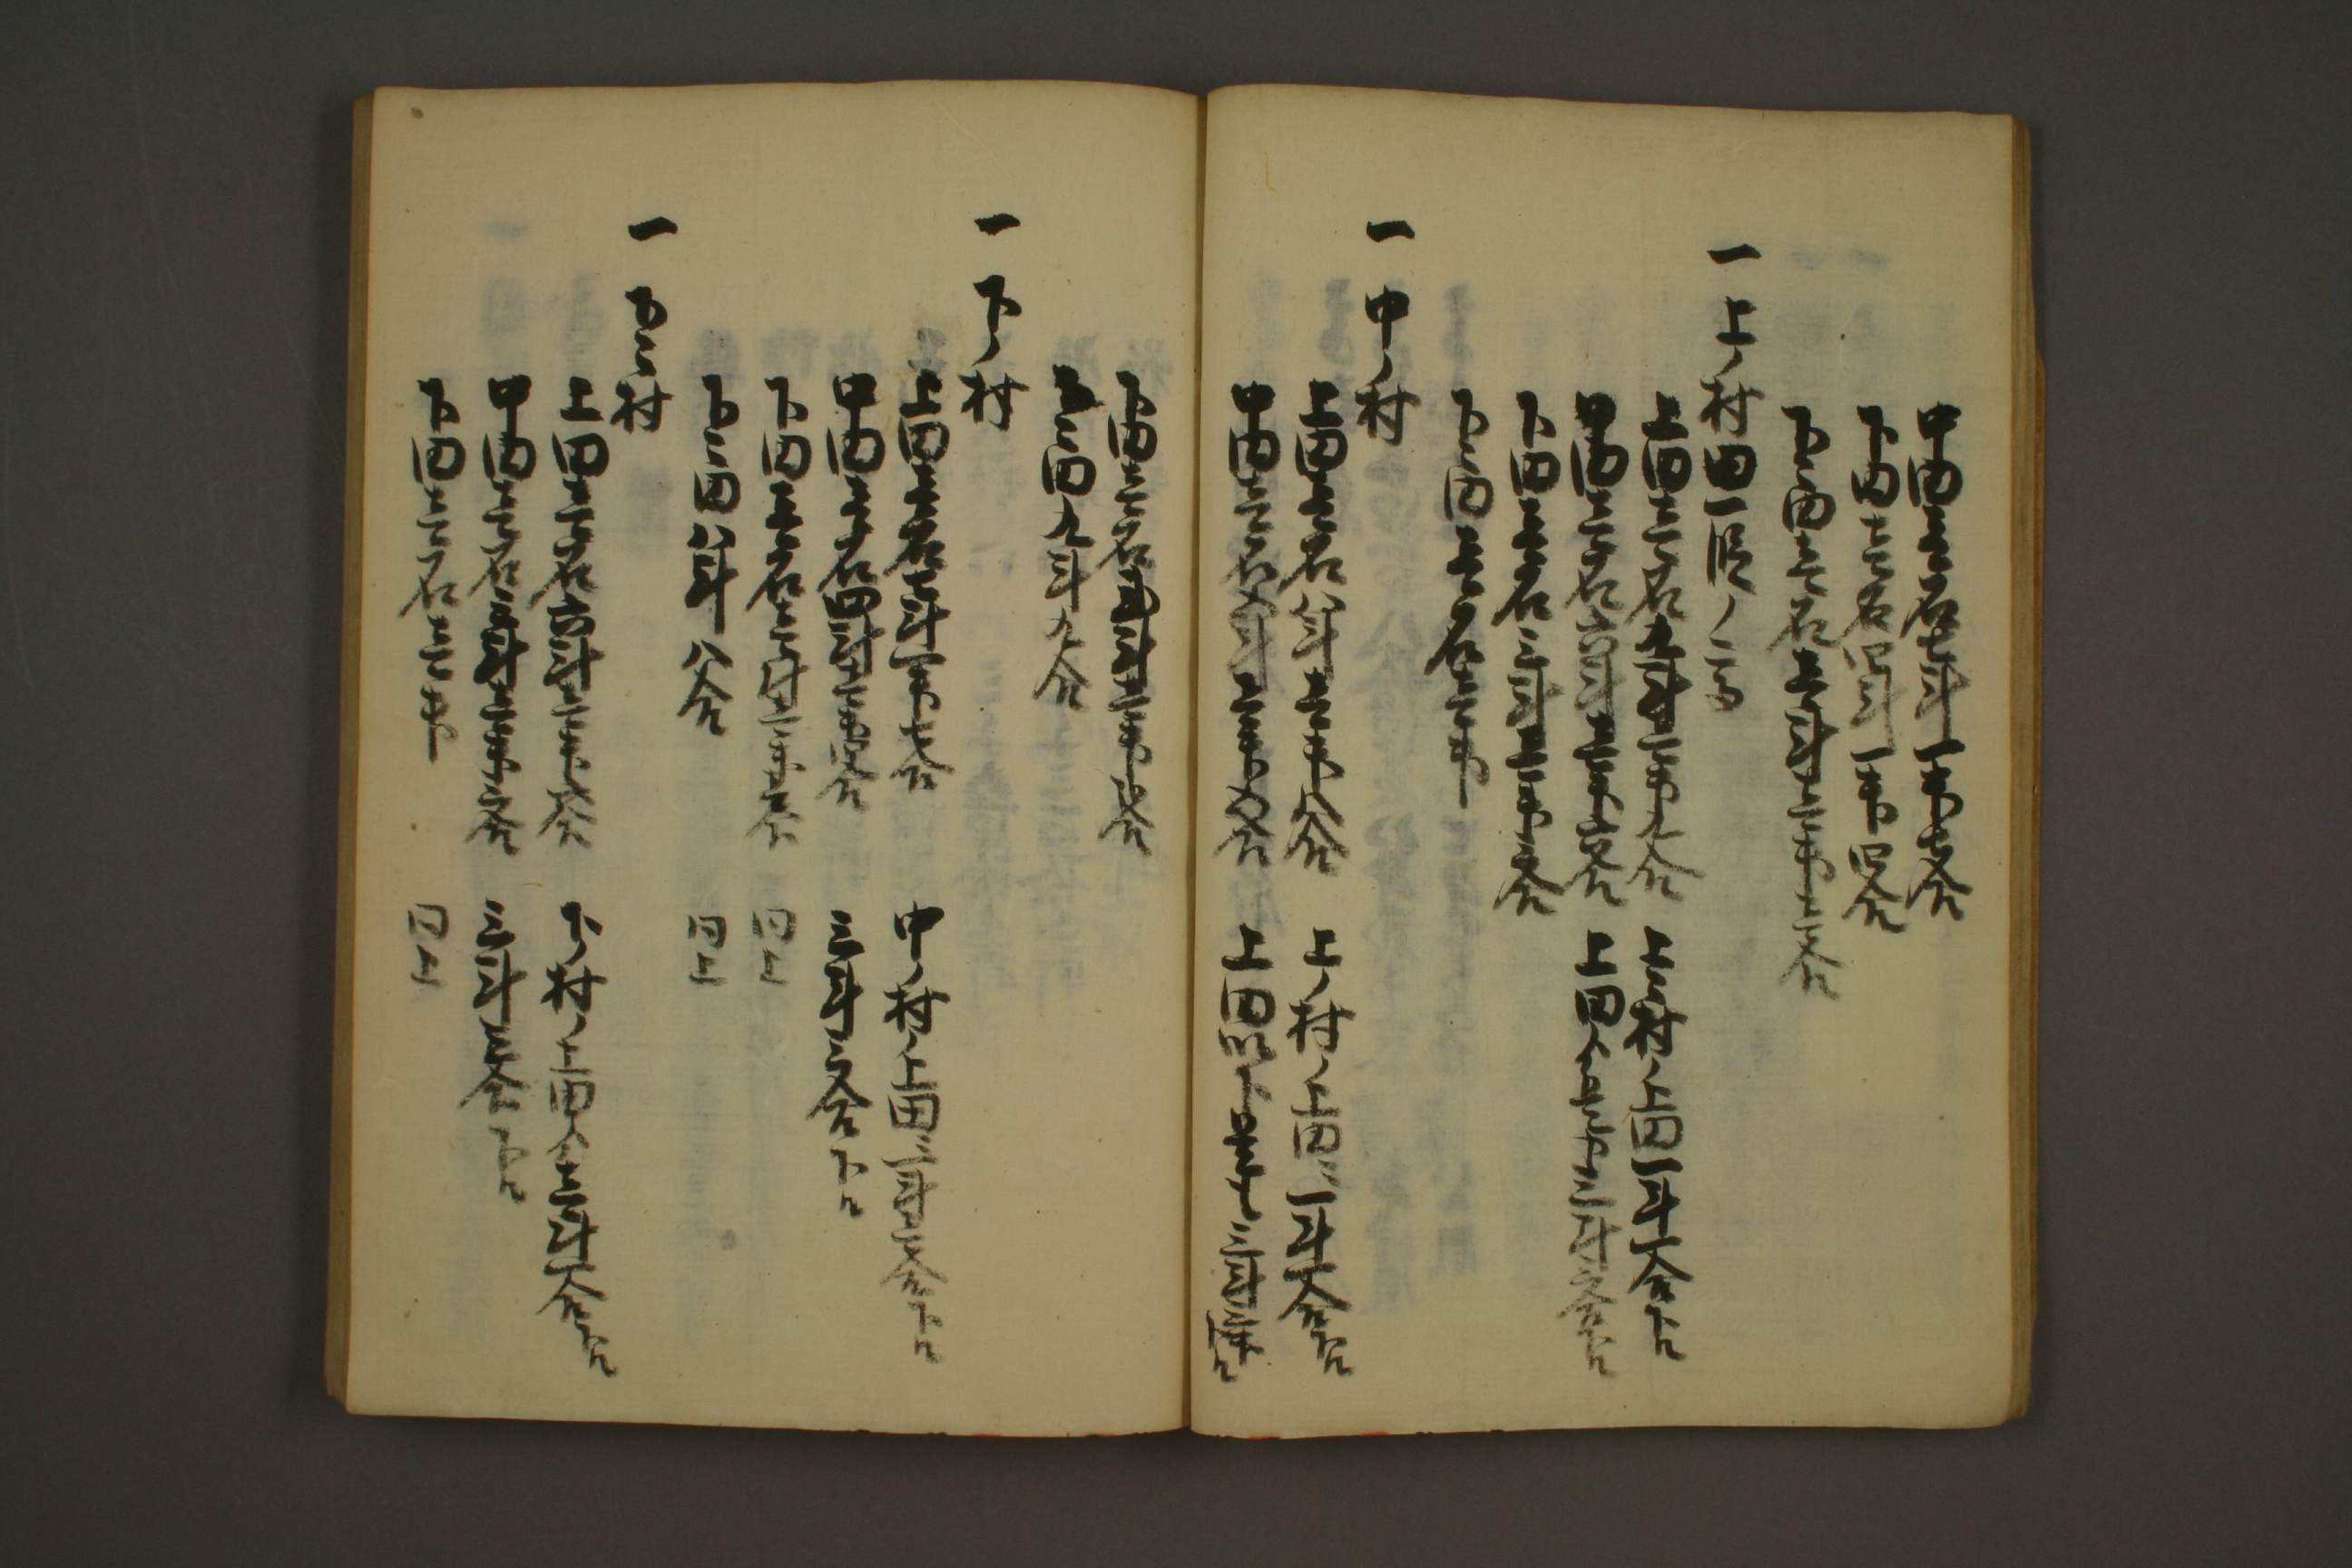 中田壱石七斗一升七合
下田壱石四斗一升四合
下〻田壱石壱斗壱升壱合
一 上ノ村田一段ノ高
上田壱石九斗壱升九合 上〻村ノ上田一斗一合下ル
中田壱石六斗壱升六合 上田 三斗三合下ル
下田壱石三斗壱升三合
下〻田壱石壱升
一 中ノ村
上田壱石八斗壱升八合 上ノ村ノ上田ニ一斗一合下ル
中田壱石五斗壱升五合 上田以下 三斗
下田壱石弐斗壱升弐合
下〻田九斗九合
一 下ノ村
上田壱石七斗一升七合 中ノ村ノ上田ニ一斗壱合下ル
中田壱石四斗壱升四合 三斗三合下ル
下田壱石壱斗壱升壱合 同上
下〻田八斗八合 同上
一 下〻村
上田壱石六斗壱升六合 下ノ村ノ上田 壱斗一合下ル
中田壱石三斗壱升三合 三斗三合下ル
下田壱石壱升 同上